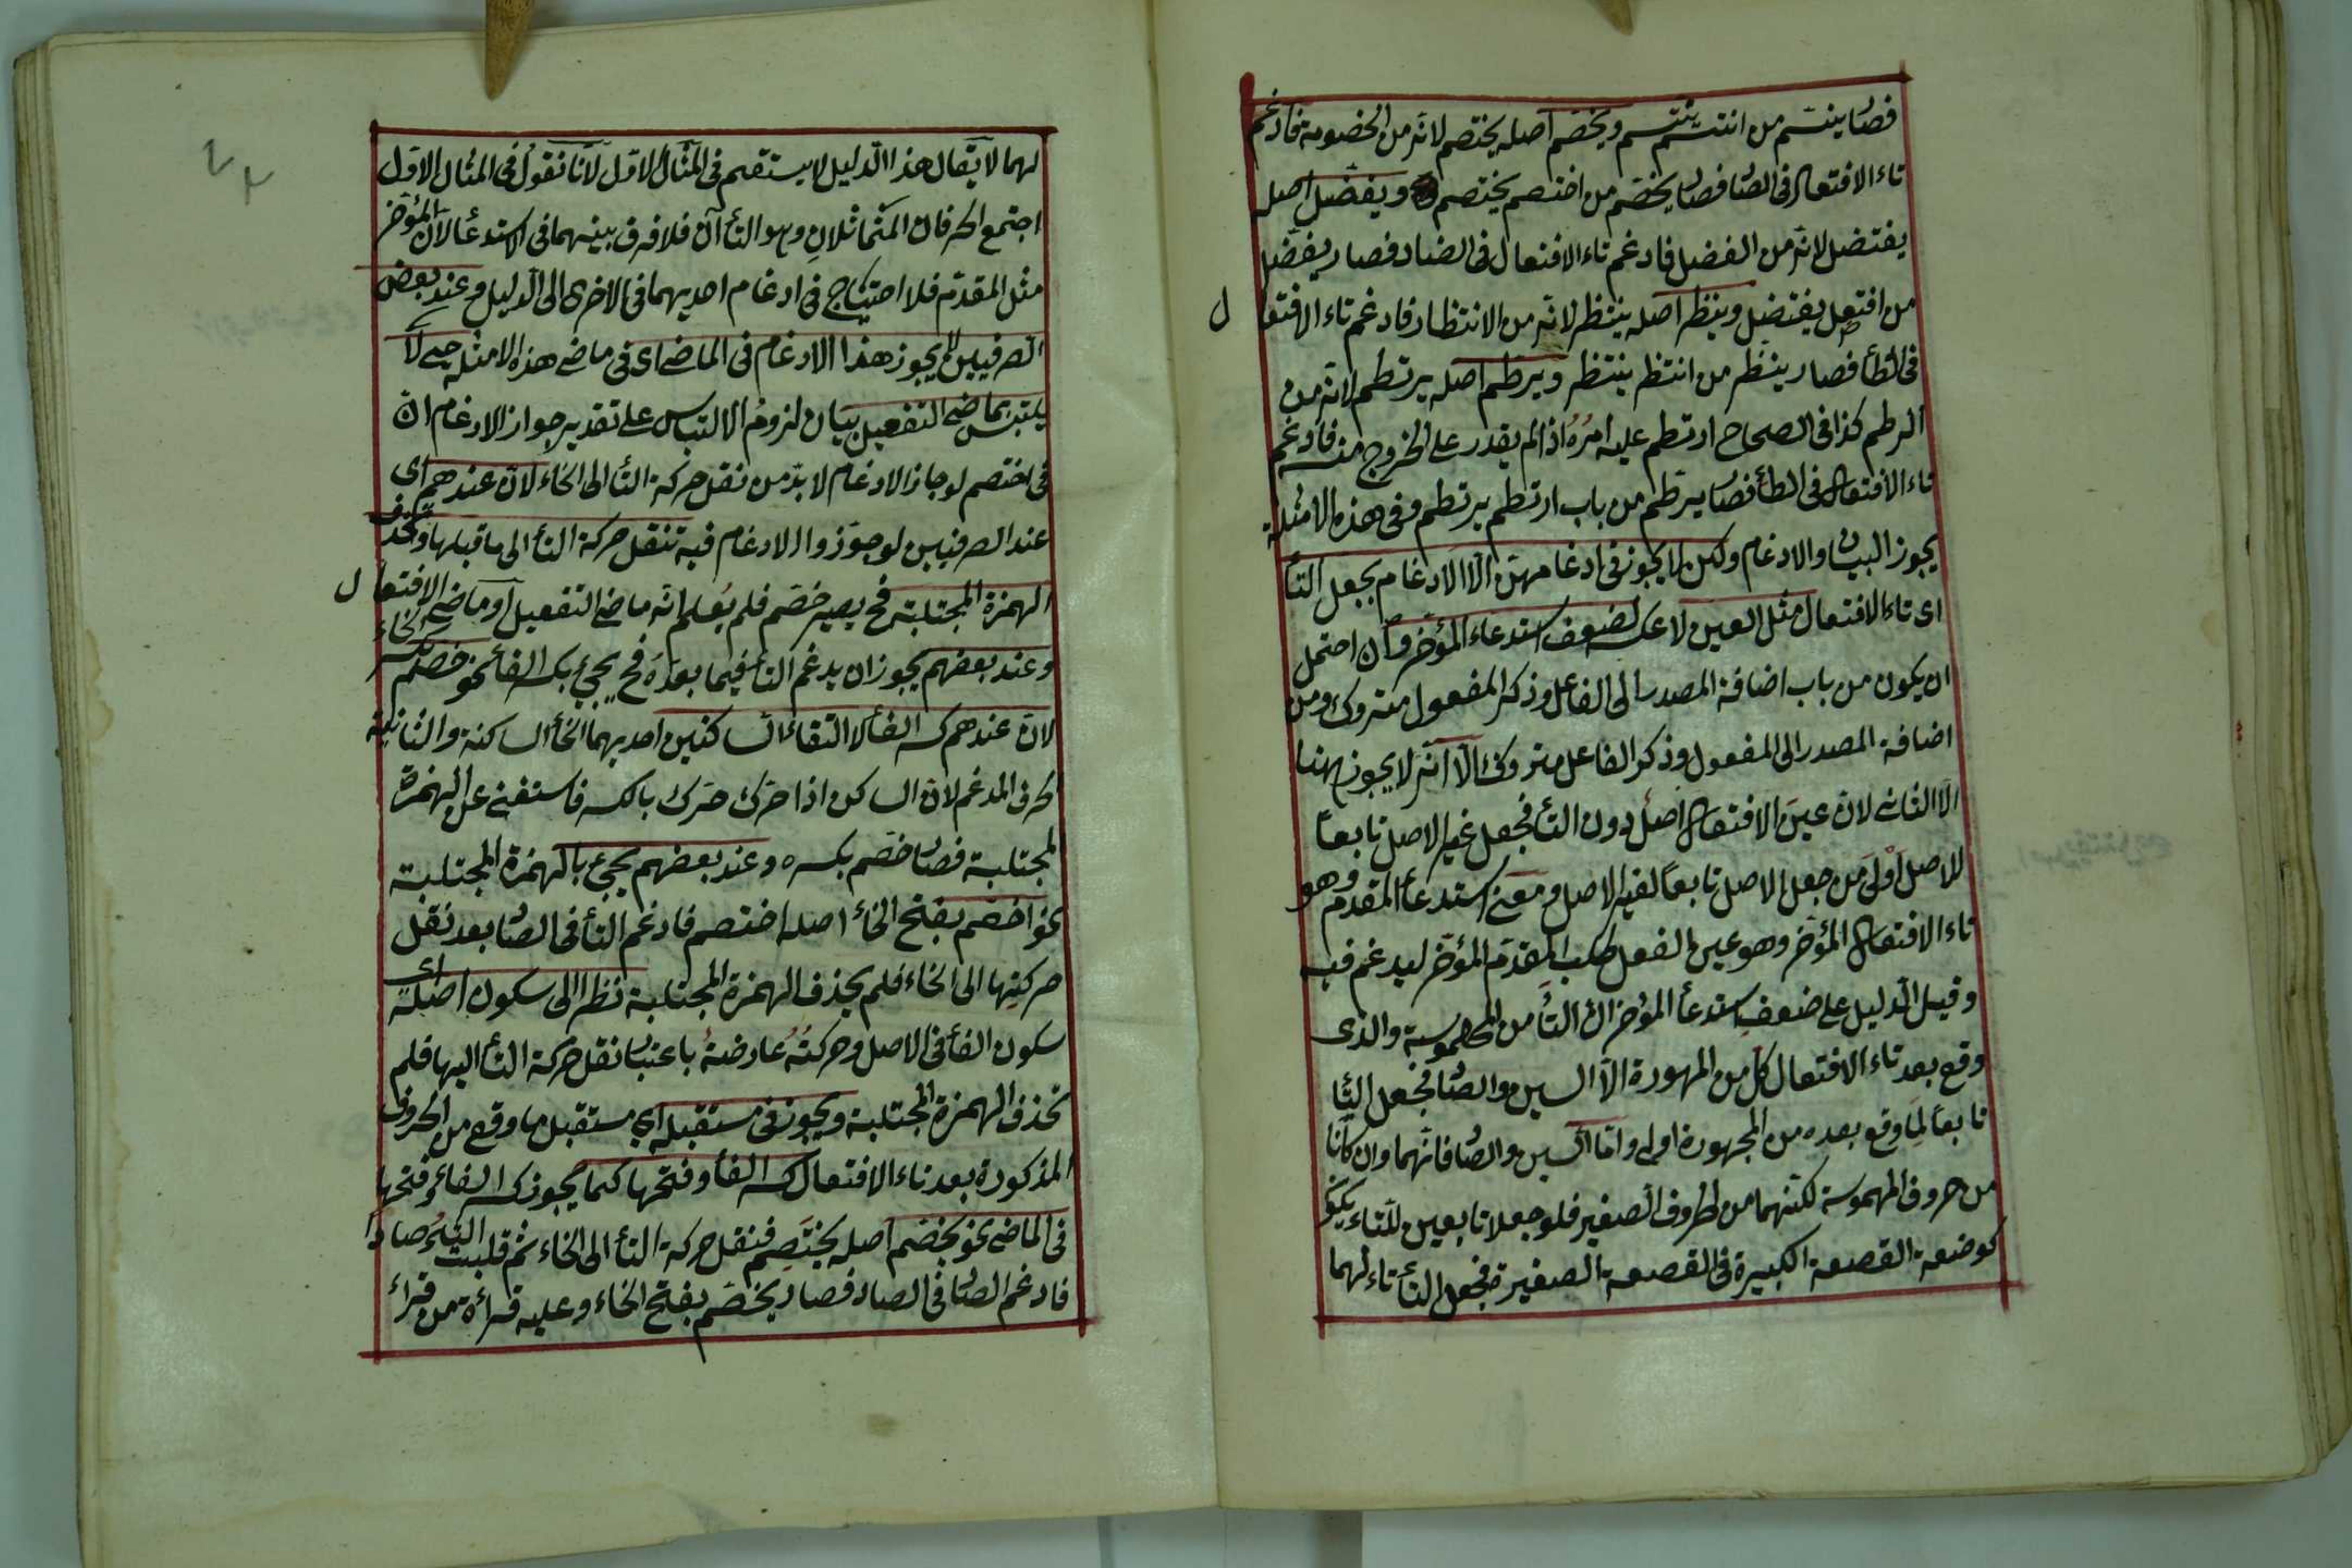 فصار ينسّم من انتسم ينتسم ويخصّم اصله يختصم لانّه من الخصومة فادغم
تاء الافتعال فى الصّا فصار يخصّم من اختصم يختصم ويفضّل اصله
يفتضل لانّه من الفضل فادغم تاء الافتعال فى الضاد فصار يفضّل
من افتضل يفتضل وينظّر اصله ينتظر لانّه من الانتظار فادغم تاء الافتعال
فى الظأ فصار ينظّر من انتظر ينتظر ويرطّم اصله يرتطم لانّه من
الرطم كذا فى الصحاح ارتطم عليه امرُهُ اذا لم يقدر على الخروج منه فادغم
تاء الافتعال فى الطأ فصار يرطّم من باب ارتطم يرتطم وفى هذه الامثلة
يجوز البيان والادغام ولكن لا يجوز فى ادغامهنّ الّا الادغام بجعل التأ
اى تاء الافتعال مثل العين لا عكسه لضعف استدعاء المؤخّر وان احتمل
ان يكون من باب اضافة المصدر الى الفاعل وذكر المفعول متروك ومن
اضافة المصدر الى المفعول وذكر الفاعل متروك الّا انّه لا يجوز ههنا
الّا الثانى لانّ عينَ الافتعال اصل دون التأ فجعل غير الاصل تابعاً
للاصل اَوْلى من جعل الاصل تابعاً لغير الاصل ومعنى استدعأ المقدم وهو
تاء الافتعال المؤخّر وهو عين الفعل طلب المقدّم المؤخّر ليدغم فيه
وقيل الّدليل على ضعف استدعأ المؤخّر انّ التأ من المهموسة والذى
وقع بعد تاء الافتعال كلّ من المهورة الّا السين والصّا فجعل التأ
تابعاً لِما وقع بعده من المجهورة اولى وامّا السين والصّا فانّهما وان كانا
من حروف المهموسة لكنّهما من حروف الصفير فلو جعلا تابعين للتاء يكون
كوضعه القصعة الكبيرة فى القصعة الصغيرة فجعل التأ تاء لهما
لهما لا يقال هذا الّدليل لا يستقيم فى المثال الاوّل لانّا نقول فى المثال الاوّل
اجتمع الحرفان المتماثلانِ وهو التأآن فلا فرق بينهما فى الاستدعأ لانّ المؤخّر
مثل المقدّم فلا احتياج فى ادغام احديهما فى الاخرى الى الدليل وعند بعض
الصرفيين لا يجوز هذا الادغام فى الماضى اى فى ماضى هذه الامثلة حتى لا
يلتبس بماضى التفعيل بيان لزوم الالتباس على تقدير جواز الادغام انّ
فى اختصم لو جاز الادغام لا بدّ من نقل حركة التأ الى الخاء لانّ عندهم اى
عند الصرفيين لو جوّزوا الادغام فيه تنقل حركة التأ الى ما قبلها وتحذف
الهمزة المجتلبة فح يصير خصّم فلم يُعلم انّه ماضى التفعيل او ماضى الافتعال
وعند بعضهم يجوز ان يدغم التأ فيما بعده فح يجئ بكسر الفأ نحو خصّم بكسر الخاء
لانّ عندهم كسر الفأ لالتقاء الساكنين احديهما الخأ الساكنة والثانية
الحرف المدغم لانّ الساكن اذا حرّك حرّك بالكسر فاستغنى عن الهمزة
المجتلبة فصار خصّم بكسره وعند بعضهم يجئ بالهمزة المجتلبة
نحو اخصّم بفتح الخأ اصله اختصم فادغم التأ فى الصّا بعد نقل
حركتِها الى الخاء فلم يحذف الهمزة المجتلبة نظرا الى سكون اصله اى
سكون الفأ فى الاصل وحركتُهُ عارضةٌ باعتبار نقل حركة التأ اليها فلم
تحذف الهمزة المجتلبة ويجوز فى مستقبله اى مستقبل ما وقع من الحروف
المذكورة بعد تاء الافتعال كسر الفأ وفتحها كما يجوز كسر الفاء وفتحها
فى الماضى نحو يخصّم اصله يختَصِم فنقل حركة التأ الى الخاء ثم قلبت التاء صادا
فادغم الصّا فى الصاد فصار يخصّم بفتح الخاء وعليه قراءة من قرأ